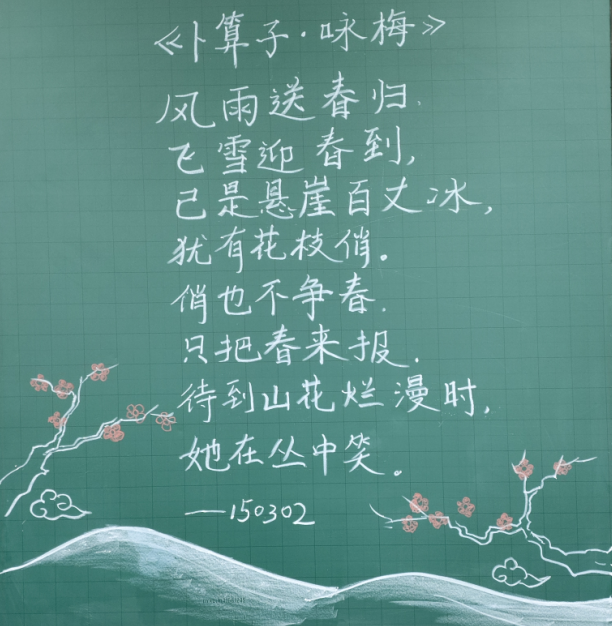 《卜算子·咏梅》
风雨送春归.
飞雪迎春到,
已是悬崖百丈冰,
犹有花枝俏。
俏也不争春.
只把春来报.
待到山花烂漫时,
她在丛中笑。
—150302